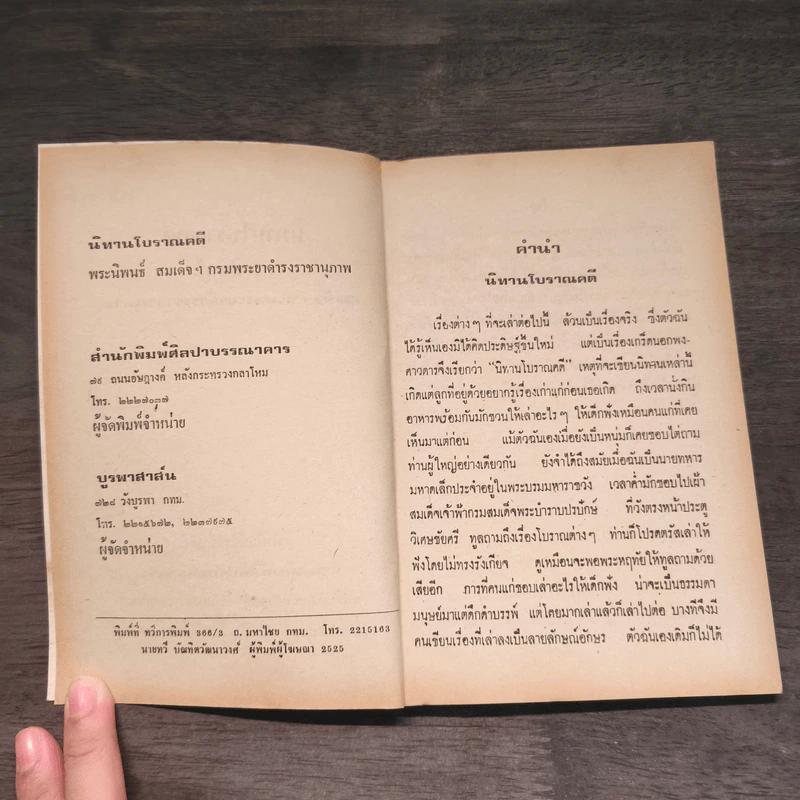 นิทานโบราณคดี
พระนิพนธ์ สมเด็จฯ กรมพระยาดำรงราชานุภาพ
สำนักพิมพ์ศิลปาบรรณาคาร
๗๙ ถนนอัษฎางค์ หลังกระทรวงกลาโหม
โทร. ๒๒๒๗๐๓๗
ผู้จัดพิมพ์จำหน่าย
บูรพาสาส์น
๗๒๘ วังบูรพา กทม.
โทร. ๒๒๑๕๖๗๒, ๒๒๓๗๙๗๕
ผู้จัดจำหน่าย
พิมพ์ที่ ทวีการพิมพ์ 366/3 ถ.มหาไชย กทม. โทร. 2215163
นายทวี บัณฑิตวัฒนาวงศ์ ผู้พิมพ์ผู้โฆษณา 2525
คำนำ
นิทานโบราณคดี
เรื่องต่างๆ ที่จะเล่าต่อไปนี้ ล้วนเป็นเรื่องจริง ซึ่งตัวฉัน
ได้รู้เห็นเองมิได้คิดประดิษฐ์ขึ้นใหม่ แต่เป็นเรื่องเกร็ดนอกพง-
ศาวดารจึงเรียกว่า “นิทานโบราณคดี” เหตุที่จะเขียนนิทานเหล่านี้
เกิดแต่ลูกที่อยู่ด้วยอยากรู้เรื่องเก่าแก่ก่อนเธอเกิด ถึงเวลานั่งกิน
อาหารพร้อมกันมักชวนให้เล่าอะไรๆ ให้เด็กฟังเหมือนคนแก่ที่เคย
เห็นมาแต่ก่อน แม้ตัวฉันเองเมื่อยังเป็นหนุ่มก็เคยชอบไต่ถาม
ท่านผู้ใหญ่อย่างเดียวกัน ยังจำได้ถึงสมัยเมื่อฉันเป็นนายทหาร
มหาดเล็กประจำอยู่ในพระบรมมหาราชวัง เวลาค่ำมักชอบไปเฝ้า
สมเด็จเจ้าฟ้ากรมสมเด็จพระบำราบปรปักษ์ ที่วังตรงหน้าประตู
วิเศษชัยศรี ทูลถามถึงเรื่องโบราณต่างๆ ท่านก็โปรดตรัสเล่าให้
ฟังโดยไม่ทรงรังเกียจ ดูเหมือนจะพอพระหฤทัยให้ทูลถามด้วย
เสียอีก ภารที่คนแก่ชอบเล่าอะไรให้เด็กฟัง น่าจะเป็นธรรมดา
มนุษย์มาแต่ดึกดำบรรพ์ แต่โดยมากเล่าแล้วก็เล่าไปต่อ บางทีจึงมี
คนเขียนเรื่องที่เล่าลงเป็นลายลักษณ์อักษร ตัวฉันเองเดิมก็ไม่ได้